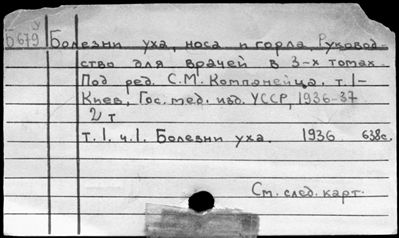 Б679 Болезни уха, носа и горла. Руковод-
ство для врачей в 3-х томах.
Под ред. С.М. Компанейца. т.1-
Киев, Гос. мед. изд. УССР, 1936-37
2 т
т.1. ч.1. Болезни уха. 1936 638с.
См. след. карт.